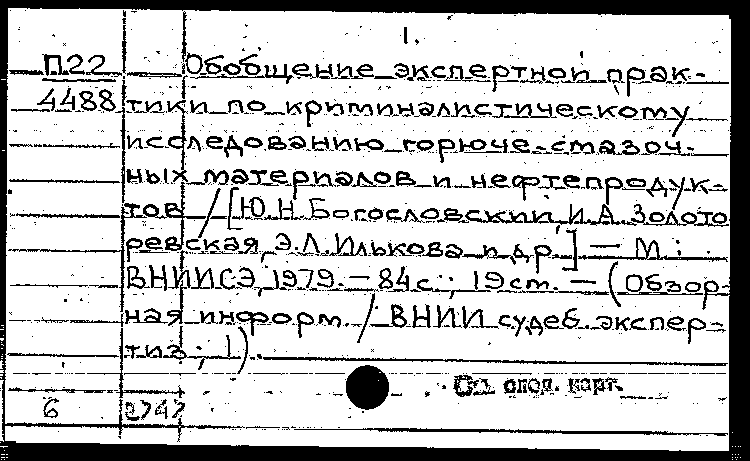 1.
П22 Обобщение экспертной прак-
4488 тики по криминалистическому
исследованию горюче-смазоч-
ных материалов и нефтепродук-
тов / [Ю.Н. Богословский, И.А. Золото
ревская, Э.Л. Илькова и др.] — М.:
ВНИИСЭ, 1979. — 84 с.; 19 см. — (Обзор-
ная информ. / ВНИИ судеб. экспер-
тиз; 1).
См. след. карт.
6 2747